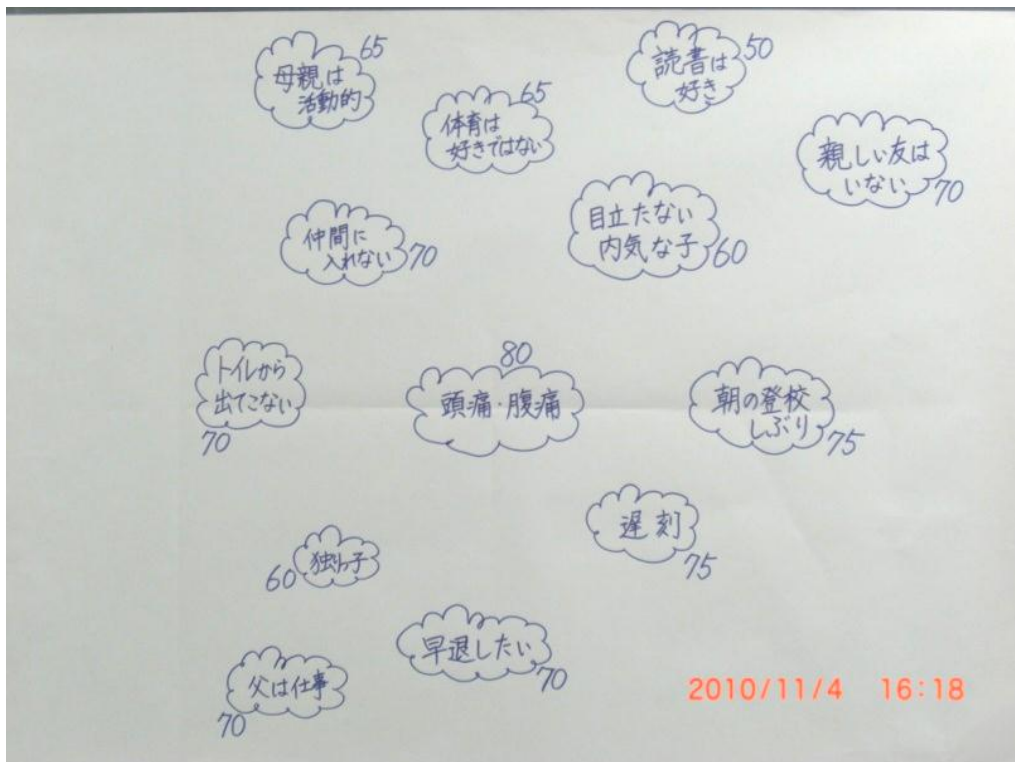 65
母親は
活動的
50
読書は
好き
65
体育は
好きではない
親しい友は
いない
70
仲間に
入れない
70
目立たない
内気な子
60
トイレから
出てこない
70
80
頭痛・腹痛
朝の登校
しぶり
75
遅刻
75
60
独りっ子
早退したい
70
父は仕事
70
2010/11/4 16:18